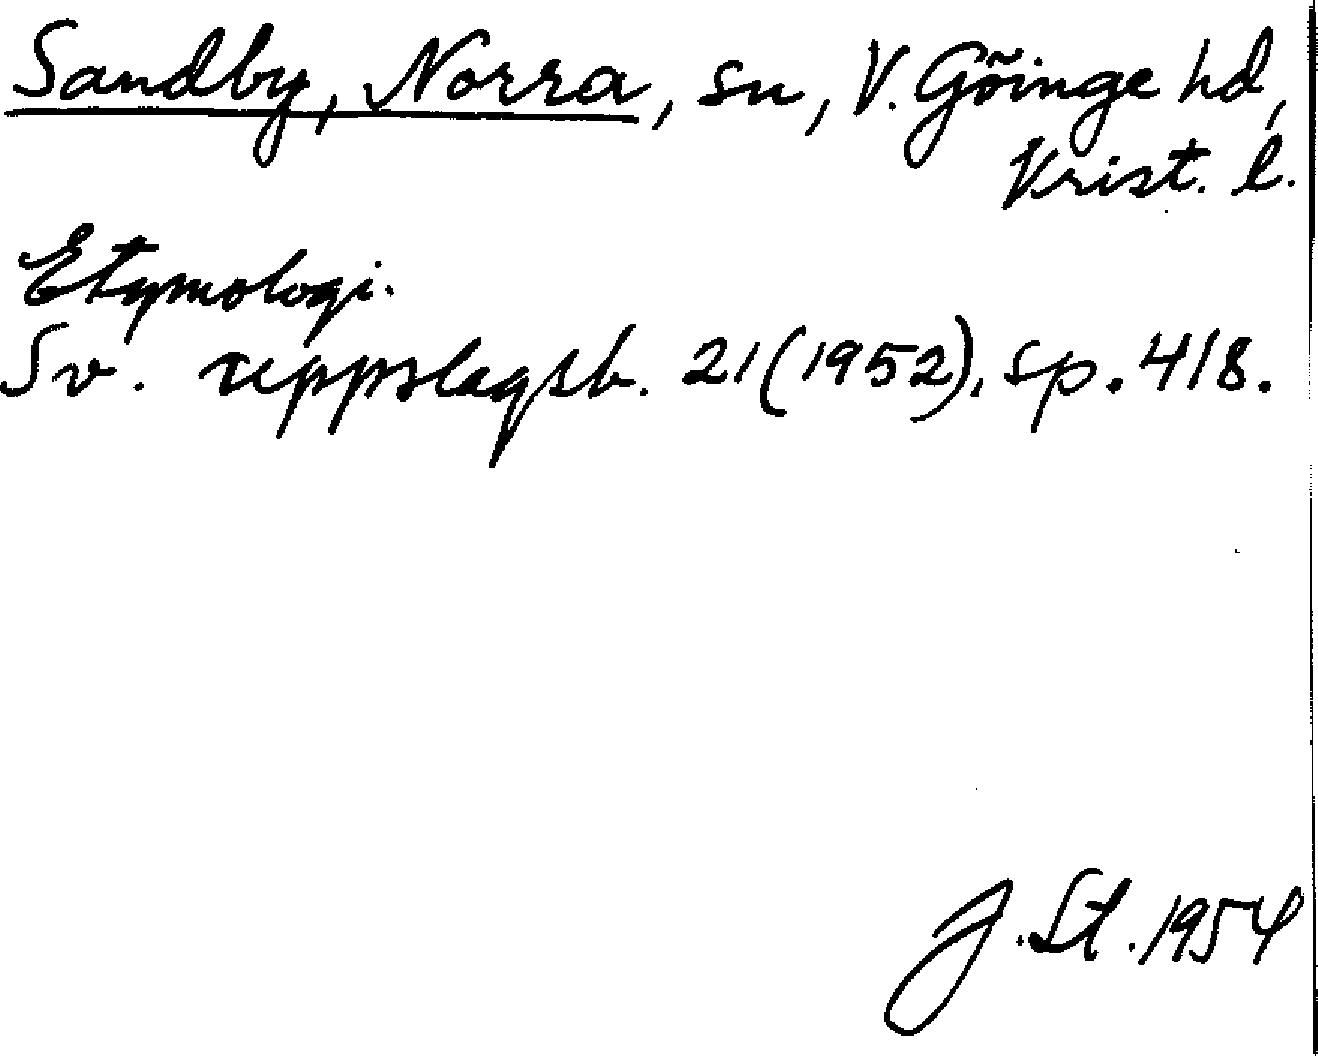 Sandby, Norra, sn, V. Göinge hd,
Krist. l.
Etymologi.
Sv. uppslagsb. 21 (1952), sp. 418.
J. St. 1954